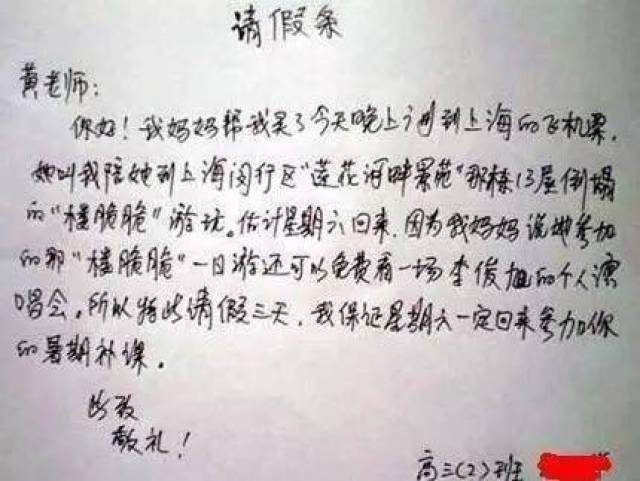 请假条
黄老师:
你好!我妈妈帮我买了今天晚上广州到上海的飞机票,
她叫我陪她到上海闵行区“莲花河畔景苑”那栋13层倒塌
的“楼脆脆”游玩。估计星期六回来,因为我妈妈说她参加
的那“楼脆脆”一日游还可以免费看一场李俊旭的个人演
唱会。所以特此请假三天,我保证星期六一定回来参加你
的暑期补课。
此致
敬礼!
高三(2)班